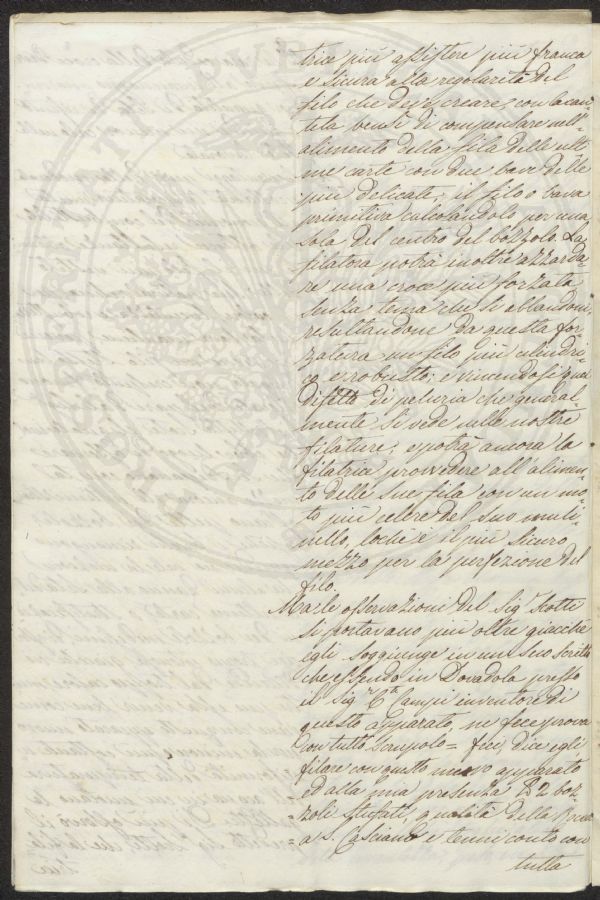 trice più assistere più franca
e sicura alla regolarità del
filo che deve creare, con la cau-
tela bensì di compensare nell'
alimento della fila delle ulti-
me carte con due bave delle
più delicate, il filo o bava
primitiva calcolandolo per una
sola del centro del bozzolo. La
filatora potrà inoltre azzarda-
re una croce più forzata
senza tema che si abbandoni,
resultandone da questa for-
zatura un filo più cilindri-
co, e robusto; e vincendosi quel
difetto di peluria che general-
mente si vede nelle nostre
filature; e potrà ancora la
filatrice provvedere all'alimen-
to delle sue fila con un mo-
to più celere del suo muli-
nello, lochè è il più sicuro
mezzo per la perfezione del
filo.
Ma le osservazioni del Sig.r Scotti
si portavano più oltre giacchè
egli soggiunge in un suo scritto
che essendo in Dovadola presso
il Sig.r C.te Campi inventore di
questo apparato, ne fece prova
con tutto scrupolo = feci, dice egli
filare con questo nuovo apparato
ed alla mia presenza 2 boz-
zoli stufati, qualità della
a S. Casciano e tenni conto con
tutta
PROSPERITATI